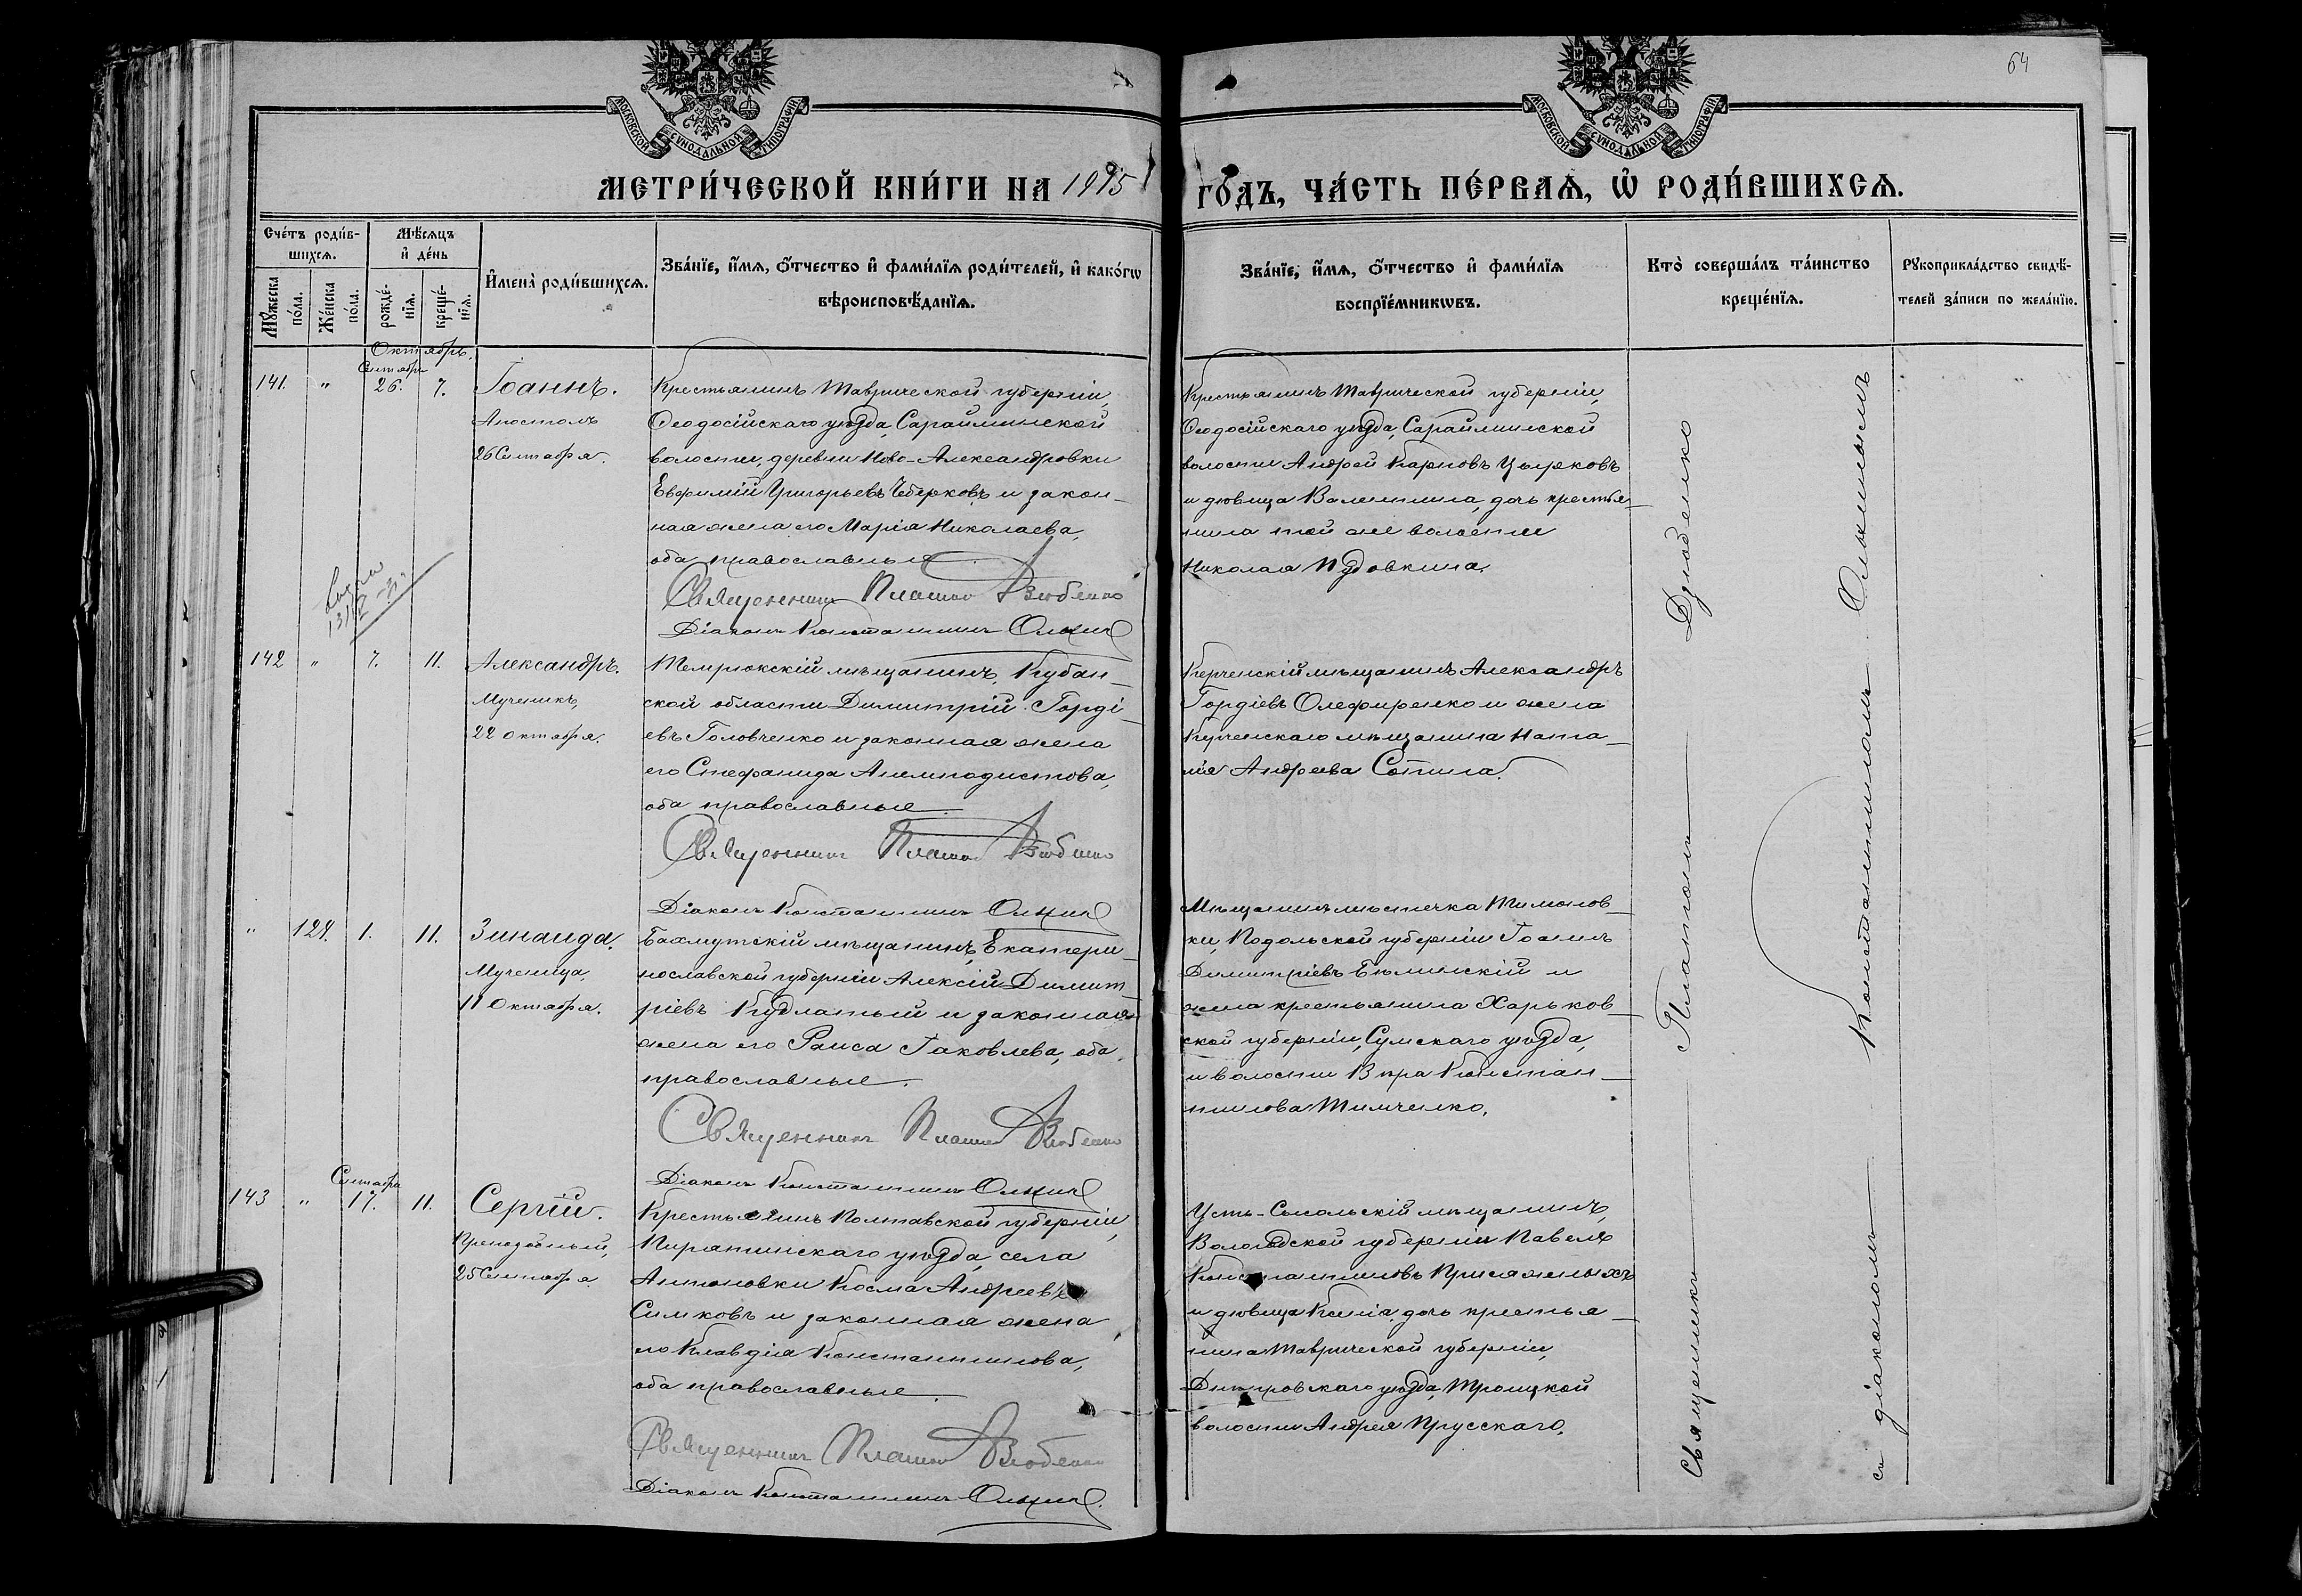 64
МОСКОВСКОЙ СѴНОДАЛЬНОЙ ТИПОГРАФІИ
МОСКОВСКОЙ СѴНОДАЛЬНОЙ ТИПОГРАФІИ
МЕТРИ́ЧЕСКОЙ КНИ́ГИ НА 1895
ГО́ДЪ, ЧА́СТЬ ПЕ́РВАѦ, Ѡ҆ РОДИ́ВШИХСѦ.
Сче́тъ роди́в-
шихсѧ.
Мꙋ́жеска по́ла.
Же́нска по́ла.
Мѣ́сѧцъ
и҆ де́нь
рожде́-нїѧ.
креще́-нїѧ.
И҆мена̀ роди́вшихсѧ.
Зва́нїе, и҆́мѧ, ѻ҆́тчество и҆ фами́лїѧ роди́телей, и҆ како́гѡ
вѣроисповѣ́данїѧ.
Зва́нїе, и҆́мѧ, ѻ҆́тчество и҆ фами́лїѧ
воспрїе́мникѡвъ.
Кто̀ соверша́лъ та́инство
креще́нїѧ.
Рꙋкоприкла́дство свидѣ́-
телей за́писи по жела́нїю.
Октябрь.
Сентября
141. " 26. 7. Іоаннъ.
Апостолъ
26 Сентября.
Крестьянинъ Таврической губерніи,
Ѳеодосійскаго уѣзда, Сарайминской
волости, деревни Ново-Александровки
Евфимій Григорьевъ и закон-
ная жена его Марія Николаева,
оба православные.
Священникъ Платонъ Дзюбенко
Діаконъ Константинъ
Крестьянинъ Таврической губерніи,
Ѳеодосійскаго уѣзда, Сарайминской
волости Андрей Карповъ
и дѣвица Валентина, дочь крестья-
нина той же волости
Николая Пудовкина.
142 " 7. 11. Александръ.
Мученикъ,
22 октября.
Темрюкскій мѣщанинъ, Кубан-
ской области Димитрій Горді-
евъ Головченко и законная жена
его Стефанида Анемподистова,
оба православные
Священникъ Платонъ Дзюбенко
Діаконъ Константинъ
Керченскій мѣщанинъ Александръ
Гордіевъ Олефиренко и жена
Керченскаго мѣщанина Ната-
лія Андреева
" 129. 1. 11. Зинаида.
Мученица,
11 Октября.
Бахмутскій мѣщанинъ, Екатери-
нославской губерніи Алексій Димит-
ріевъ Кудлатый и законная
жена его Раиса Іаковлева, оба
православные.
Священникъ Платонъ Дзюбенко
Діаконъ Константинъ
Мѣщанинъ мѣстечка
Подольской губерніи Іоаннъ
Димитріевъ и
жена крестьянина Харьков-
ской губерніи, Сумскаго уѣзда,
и волости Вѣра Констан-
тинова Тимченко.
Сентября
143 " 17. 11. Сергій.
Преподобный,
25 Сентября
Крестьянинъ Полтавской губерніи,
Пирятинскаго уѣзда, села
Антоновки Косма Андреевъ
Симковъ и законная жена
его Клавдія Константинова,
оба православные.
Священникъ Платонъ Дзюбенко
Діаконъ Константинъ
Усть-Сысольскій мѣщанинъ,
Вологодской губерніи Павелъ
Константиновъ Присяжныхъ
и дѣвица Ксенія, дочь крестья-
нина Таврической губерніи,
Днѣпровскаго уѣзда, Троицкой
волости Андрея Прусскаго.
Священникъ Платонъ Дзюбенко
съ діакономъ Константиномъ